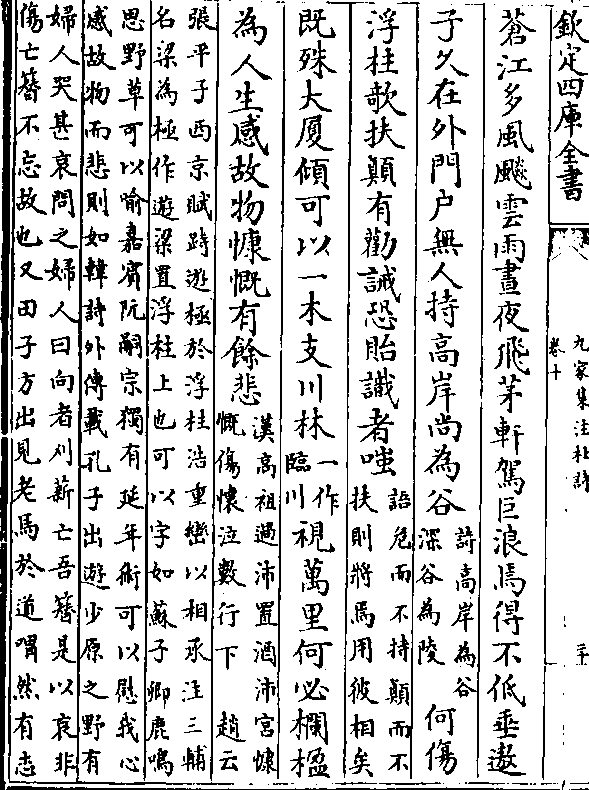 欽定四庫全書
九家集注杜詩
卷十
二十
蒼江多風飈雲雨晝夜飛茅軒駕巨浪焉得不低垂遨
子久在外門户無人持高岸尚為谷
詩高岸為谷
深谷為陵
何傷
浮柱欹扶顛有勸誡恐貽識者嗤
語危而不持顛而不
扶則將焉用彼相矣
既殊大厦傾可以一木支川林
一作
臨川
視萬里何必欄楹
為人生感故物慷慨有餘悲
漢高祖過沛置酒沛宫慷
慨傷懐泣數行下 趙云
張平子西京賦跱遊極於浮柱浩重欒以相承注三輔
名梁為極作遊梁置浮柱上也可以字如蘇子卿鹿鳴
思野草可以喻嘉賓阮嗣宗獨有延年術可以慰我心
感故物而悲則如韓詩外傳載孔子出遊少原之野有
婦人哭甚哀問之婦人曰向者刈薪亡吾簪是以哀非
傷亡簪不忘故也又田子方出見老馬於道喟然有志